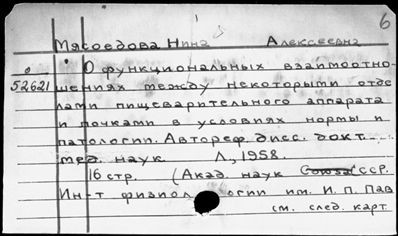 6
Мясоедова Нина Алексеевна
О функциональных взаимоотно-
52621 шениях между некоторыми отде
лами пищеварительного аппарата
и почками в условиях нормы и
патологии. Автореф. дисс. докт.
мед. наук Л, 1958.
16 стр. (Акад. наук Союза ССР.
Ин-т физиол огии им. И. П. Пав
см. след. карт